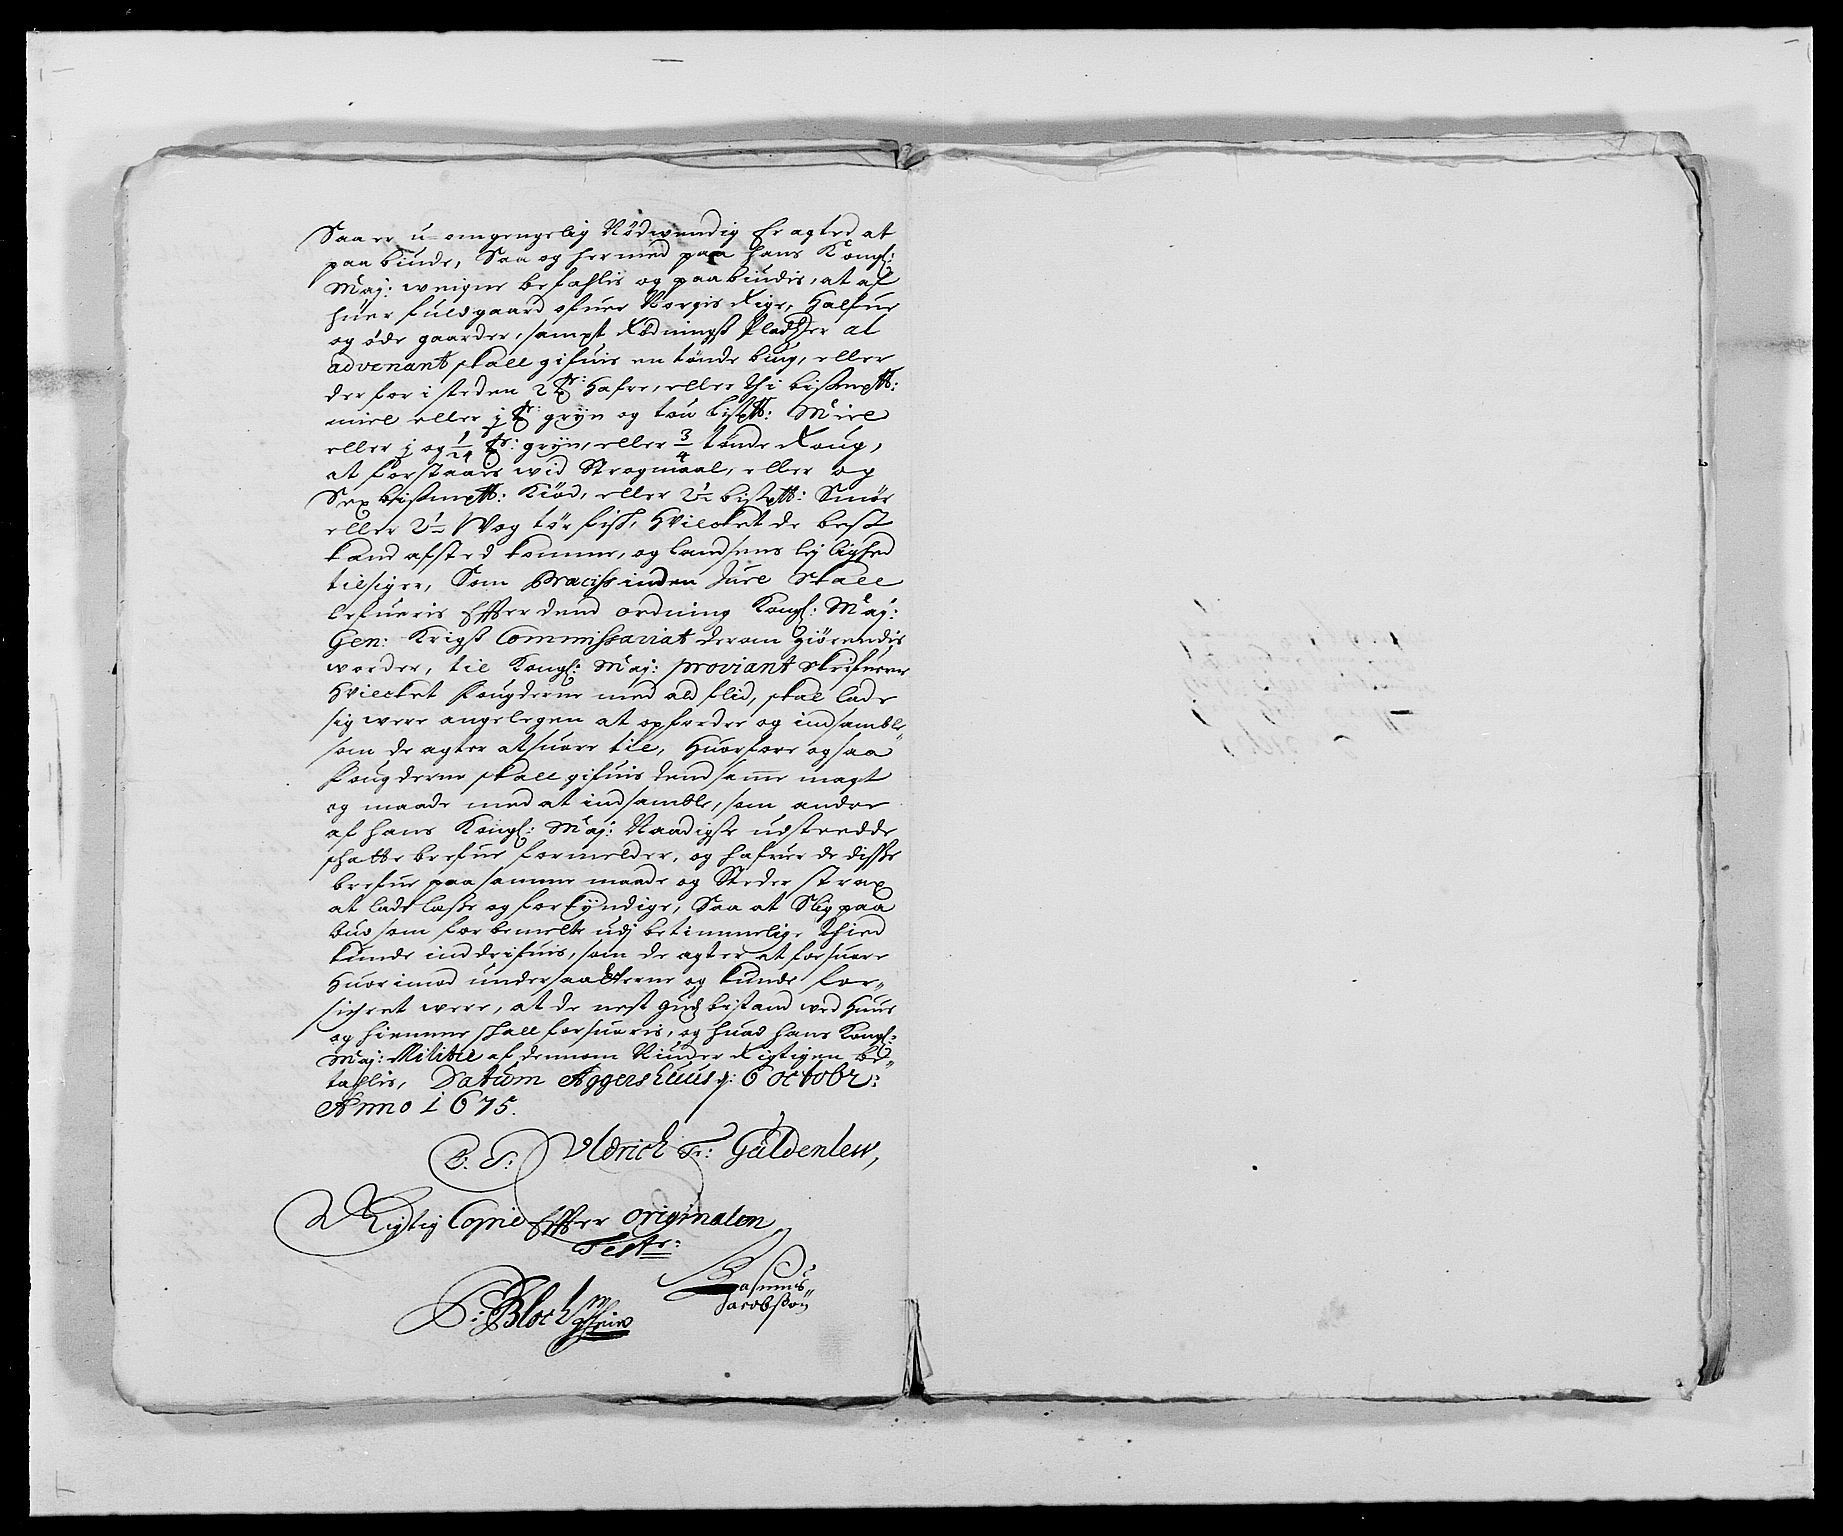 Saa er u-omgengelig Nødwendig Er agted at
paa biude, Saa og hermed paa hans Kongl:
Maÿ: weigne befahlis og paabiudis, at af
huer fuldgaard ofuer Norgis Rige, Halfue
og øde gaarder, sampt Rødnings Pladtzer al
advenant skall gifuis en tønde biug, eller
der for i steden 2 tr: Hafre, eller thi bissmett:
miel eller j tr: gryn og tou bissmett: Miel
eller j og 1/24 tr: gryn, eller 3/4 tønde Roug,
at forstaaes wid Strogmaal, eller og
Sex bissmett: Kiød, eller 2½ bissmett: Smør
eller 2½ Wog tør fisk, Hvilcket de best
kand afsted komme, og landsens lejlighed
tilsiger, Som Præcise inden Juel skall
lefueris Efter dend ordning Kongl: Maÿ:
Gen: Krigs Commissariat derom giørendis
worder, til Kongl: Maÿ: Proviant skrifuere
Hvilcket Fougderne med ald flid, skal lade
sig were angelegen at opfordre og indsamble,
som de agter at suare til, Huorfore og saa
Fougderne skall gifuis dend same magt
og maade med at indsamble, som andre
af hans Kongl: Maÿ: Naadigste udstædde
schatte brefue formelder, og hafuer de disse
brefue paa samme maade og Steder strax
at lade læse og forkyndige, Saa at Slig paa
bud som forbemelte udj betimmelige thied
kunde inddrifuis, som de agter at forsuare
Huorimod undersaatterne og kunde for-
sichret were, at de nest Guds bistand wed Huus
og hiemme skall forsuaris, og huad hans Kongl:
Maÿ: Militie af dennom Niuder Rigtigen be-
tahlis, Datum Aggershuus d: 6 octobr:
Anno 1675.
L: S: Uldrich Fr: Güldenlew,
Rigtig Copie Efter originalen
Test:
Rasmus
Jacobsøn
P: Bloch